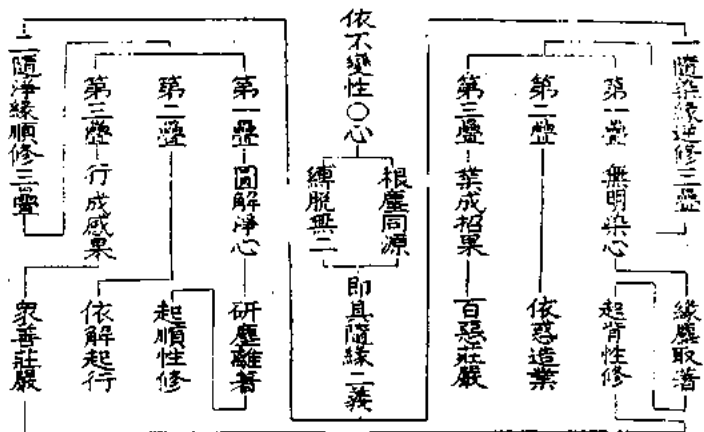 一隨染緣逆修三疊
第一疊 無明染心
緣塵取著
起背性修
第二疊
依惑造業
第三疊 業成招果
百惡莊嚴
依不變性○心
根塵同源
縛脫無二
即具隨緣二義
第一疊 圓解淨心
研塵離著
起順性修
第二疊
依解起行
第三疊 行成感果
眾善莊嚴
二隨淨緣順修三疊